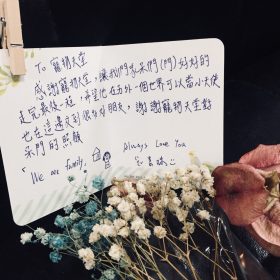 To 寵物天堂
感謝寵物天堂,讓我們家呆們(門)好好的
走完最後一程,希望他在另外一個世界可以當小天使
也在這邊交到很多好朋友,謝謝寵物天堂對
呆門的照顧
「We are family.
Always Love You